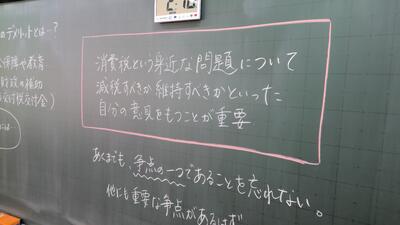 のデメリットとは…?
保障や教育
財政の補助
方交付税交付金)
には…
消費税という身近な問題について
減税すべきか維持すべきかといった
自分の意見をもつことが重要
あくまでも、争点の一つであることを忘れない。
他にも重要な争点があるはず